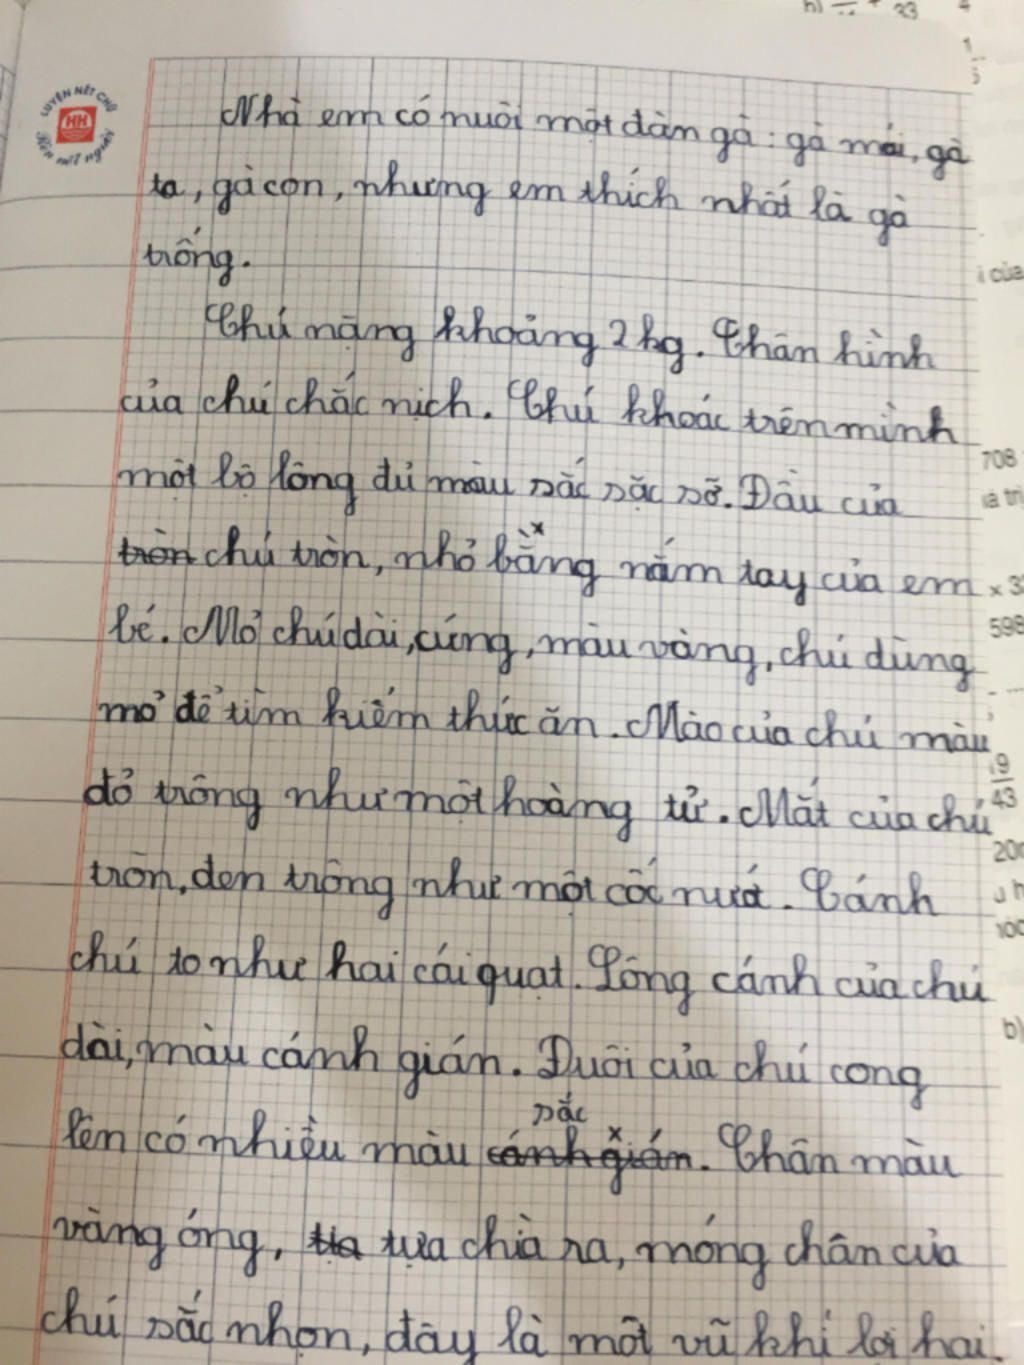 LUYỆN NÉT CHỮ
HH
Rèn nết người
Nhà em có nuôi một đàn gà: gà mái, gà
ta, gà con, nhưng em thích nhất là gà
trống.
Chú nặng khoảng 2 kg. Thân hình
của chú chắc nịch. Chú khoác trên mình
một bộ lông đủ màu sắc sặc sỡ. Đầu của
tròn chú tròn, nhỏ bằng nắm tay của em
bé. Mỏ chú dài, cứng, màu vàng, chú dùng
mỏ để tìm kiếm thức ăn. Mào của chú màu
đỏ trông như một hoàng tử. Mắt của chú
tròn, đen trông như một cốc nướ. Cánh
chú to như hai cái quạt. Lông cánh của chú
dài, màu cánh gián. Đuôi của chú cong
sắc
lên có nhiều màu cánh gián. Chân màu
vàng óng, tựa chìa ra, móng chân của
chú sắc nhọn, đây là một vũ khí lợi hại.
33
4
của
708
598
43
b)